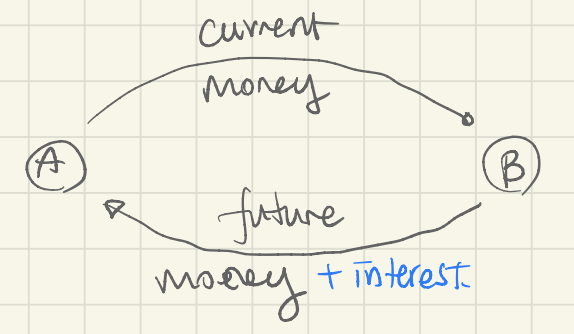 current
money
A
B
future
money + interest.